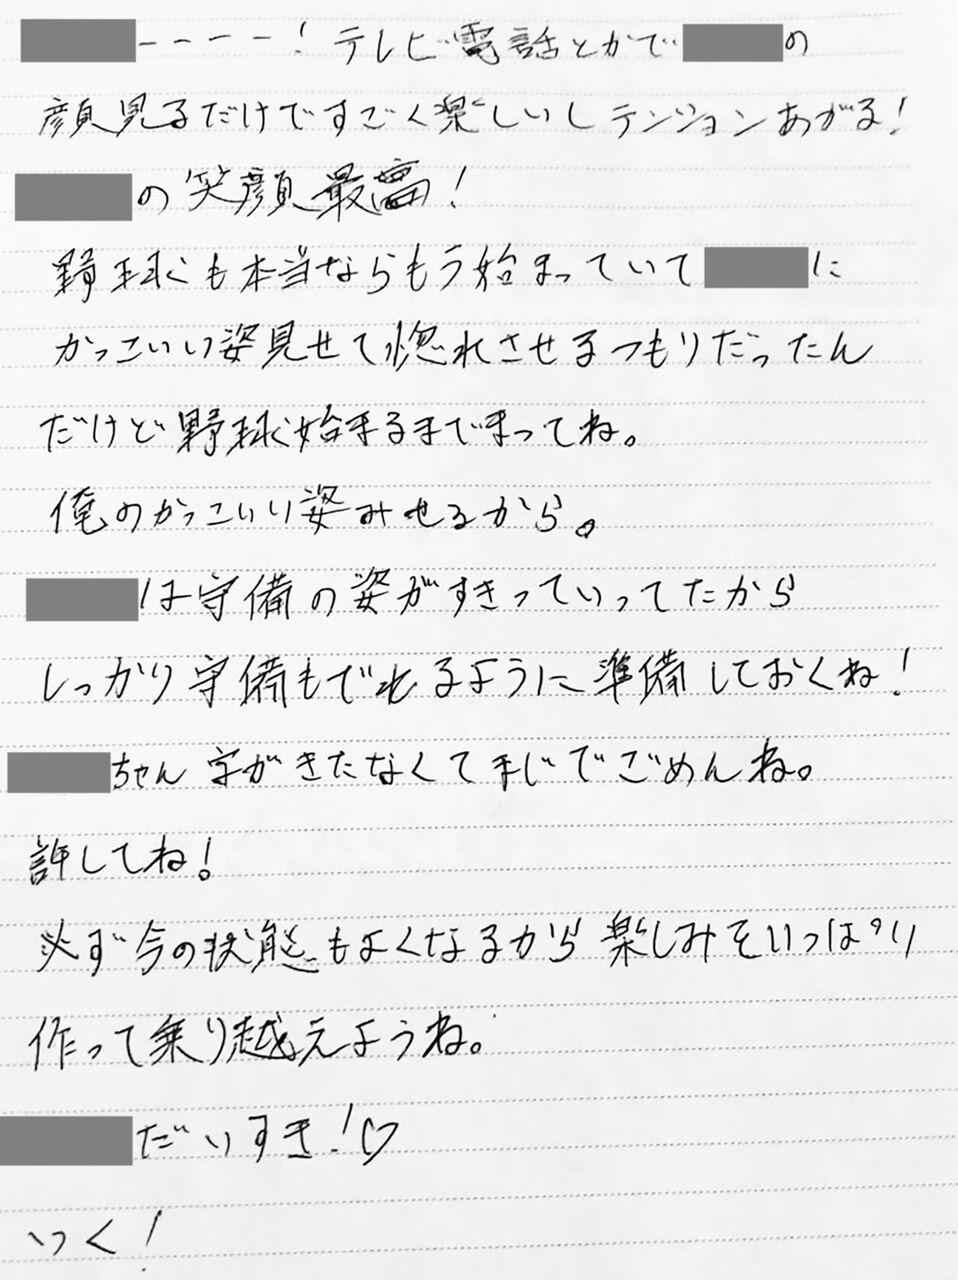 ーーーー!テレビ電話とかで の
顔見るだけですごく楽しいしテンションあがる!
の笑顔最高!
野球も本当ならもう始まっていて に
かっこいい姿見せて惚れさせるつもりだったん
だけど野球始まるまでまってね。
俺のかっこいい姿みせるから。
は守備の姿がすきっていってたから
しっかり守備もでれるように準備しておくね!
ちゃん 字がきたなくてまじでごめんね。
許してね!
必ず今の状態もよくなるから楽しみをいっぱい
作って乗り越えようね。
だいすき!♡
いっく!